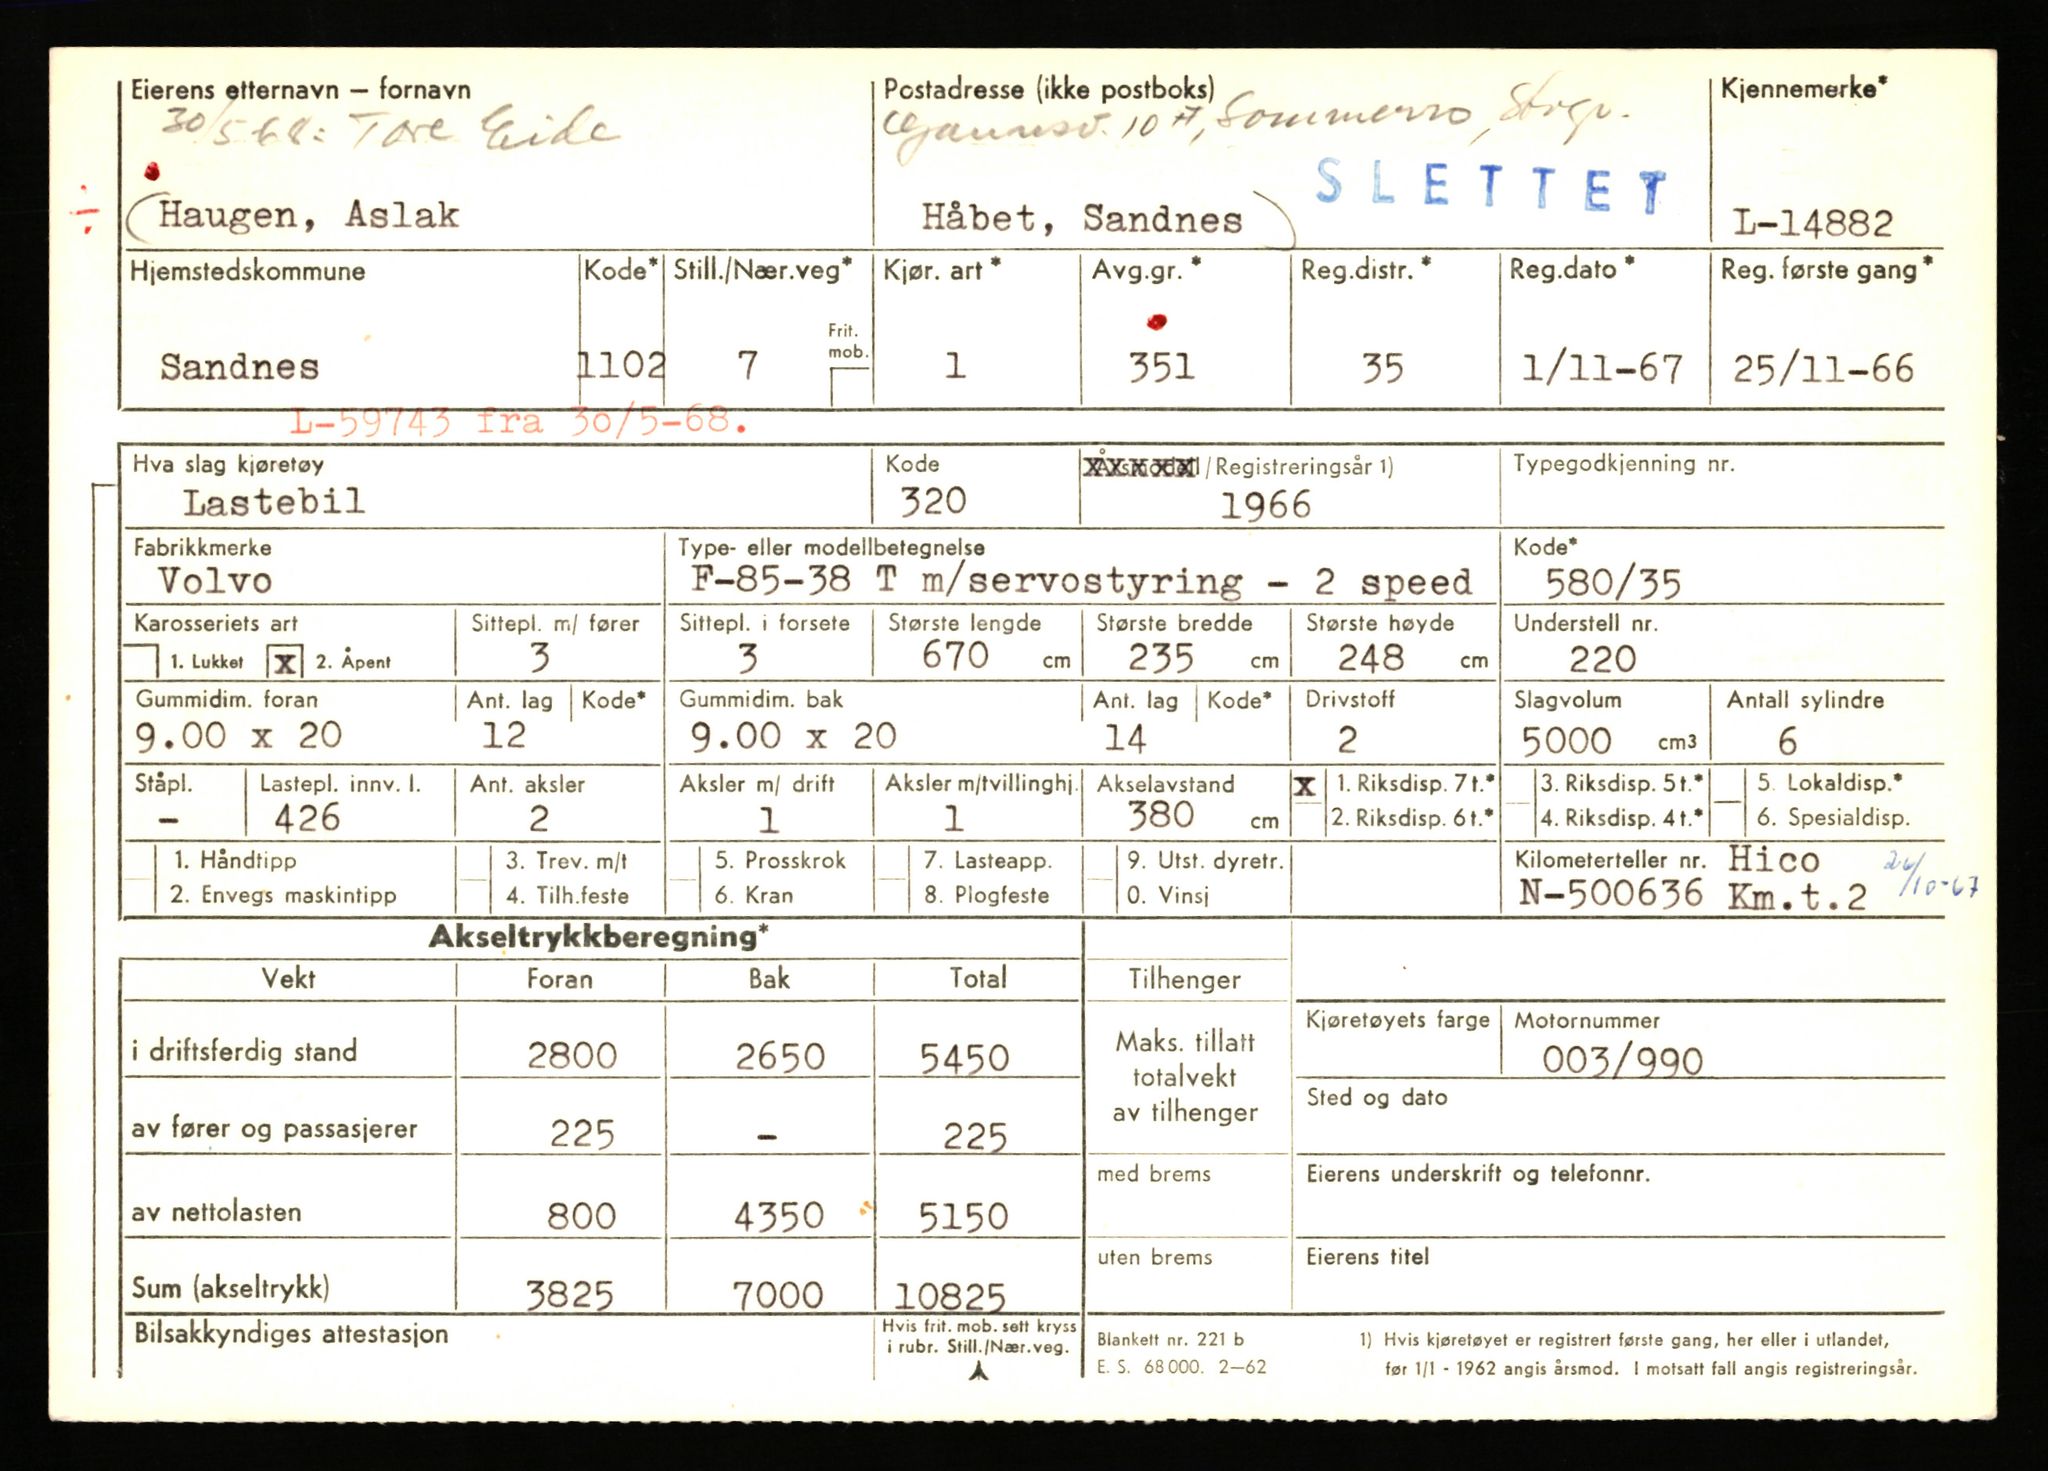 Eierens etternavn — fornavn Postadresse (ikke postboks) Kjennemerke*
30/5 68: Tore Eide 10 A, Sommerro, Stvgr.
SLETTET
(Haugen, Aslak Håbet, Sandnes) L-14882
Hjemstedskommune Kode* Still./Nær.veg* Kjør. art* Avg.gr.* Reg.distr.* Reg.dato* Reg. første gang*
Frit. mob.
Sandnes 1102 7 1 351 35 1/11-67 25/11-66
L-59743 fra 30/5-68.
Hva slag kjøretøy Kode Årsmodell/Registreringsår 1) Typegodkjenning nr.
Lastebil 320 1966
Fabrikkmerke Type- eller modellbetegnelse Kode*
Volvo F-85-38 T m/servostyring - 2 speed 580/35
Karosseriets art Sittepl. m/ fører Sittepl. i forsete Største lengde Største bredde Største høyde Understell nr.
1. Lukket X 2. Åpent 3 3 670 cm 235 cm 248 cm 220
Gummidim. foran Ant. lag Kode* Gummidim. bak Ant. lag Kode* Drivstoff Slagvolum Antall sylindre
9.00 x 20 12 9.00 x 20 14 2 5000 cm3 6
Ståpl. Lastepl. innv. l. Ant. aksler Aksler m/ drift Aksler m/tvillinghj. Akselavstand X 1. Riksdisp. 7 t.* 3. Riksdisp. 5 t.* 5. Lokaldisp.*
- 426 2 1 1 380 cm 2. Riksdisp. 6 t.* 4. Riksdisp. 4 t.* 6. Spesialdisp.
1. Håndtipp 3. Trev. m/t 5. Prosskrok 7. Lasteapp. 9. Utst. dyretr. Kilometerteller nr. Hico 26/10-67
2. Envegs maskintipp 4. Tilh.feste 6. Kran 8. Plogfeste 0. Vinsj N-500636 Km.t.2
Akseltrykkberegning*
Vekt Foran Bak Total Tilhenger
Kjøretøyets farge Motornummer
i driftsferdig stand 2800 2650 5450 Maks. tillatt totalvekt av tilhenger 003/990
Sted og dato
av fører og passasjerer 225 - 225
med brems Eierens underskrift og telefonnr.
av nettolasten 800 4350 5150
uten brems Eierens titel
Sum (akseltrykk) 3825 7000 10825
Bilsakkyndiges attestasjon Hvis frit. mob. sett kryss Blankett nr. 221 b 1) Hvis kjøretøyet er registrert første gang, her eller i utlandet,
i rubr. Still./Nær.veg. E. S. 68 000. 2—62 før 1/1 - 1962 angis årsmod. I motsatt fall angis registreringsår.